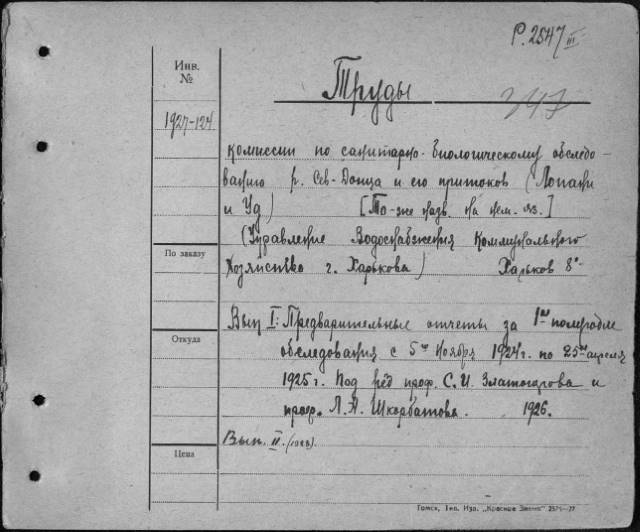 Р. 2547 III
Инв.
№
Труды
347
1927-124
комиссии по санитарно-биологическому обследо-
ванию р. Сев-Донца и его притоков (Лопани
и Уд) [То-же назв. на нем. яз.]
(Управление Водоснабжения Коммунального
По заказу
Хозяйства г. Харькова) Харьков 8°-
Вып I: Предварительные отчеты за 1ое полугодие
Откуда
обследования с 5го Ноября 1924г. по 25ое апреля
1925г. Под ред проф. С. И. Златогорова и
проф. Л. А. Шкорбатова. 1926.
Вып. II.
Цена
Томск, 1по. Изд. „Красное Знамя" 2571—27